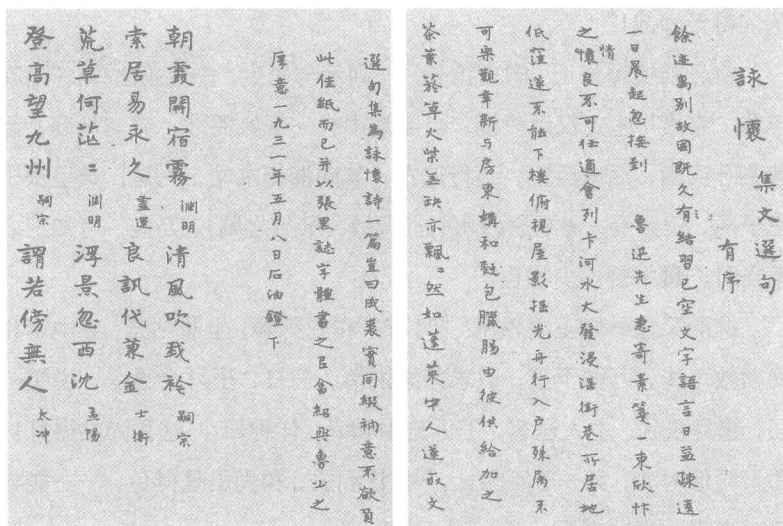 詠懷 集文選句
有序
別故國既久有結習已空文字語言日益疎遠
一日晨起忽接到 魯迅先生惠寄素箋一束欣忭
之情懷良不可任適會列卡河水大發浸淫街巷所居地
低窪遂不能下樓俯視屋影摇光舟行入户殊属不
可樂觀幸新与房東媾和麪包臘腸由彼供給加之
茶葉菸草火柴無缺亦飄〻然如蓬萊中人遂取文
選句集為詠懷詩一篇豈曰成裘實同綴衲意不欲負
此佳紙而已并以張黑誌字體書之 紹興魯 之
厚意一九三一年五月八日石油鐙下
朝霞開宿霧 淵明 清風吹我衿 嗣宗
索居易永久 靈運 良訊代兼金 士衡
荒草何茫〻 淵明 浮景忽西沈 孟陽
登高望九州 嗣宗 謂若傍無人 太冲